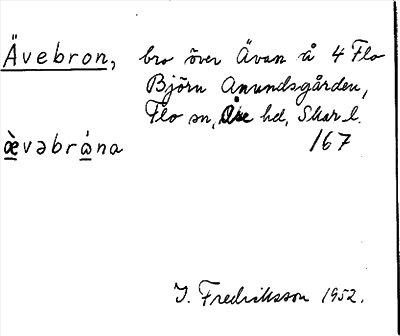 Ävebron, bro över Ävan å 4 Flo
Björn Anundsgården,
Flo sn, Åse hd, Skar l.
æ̀vəbrɷ́na 167
I. Fredriksson 1952.